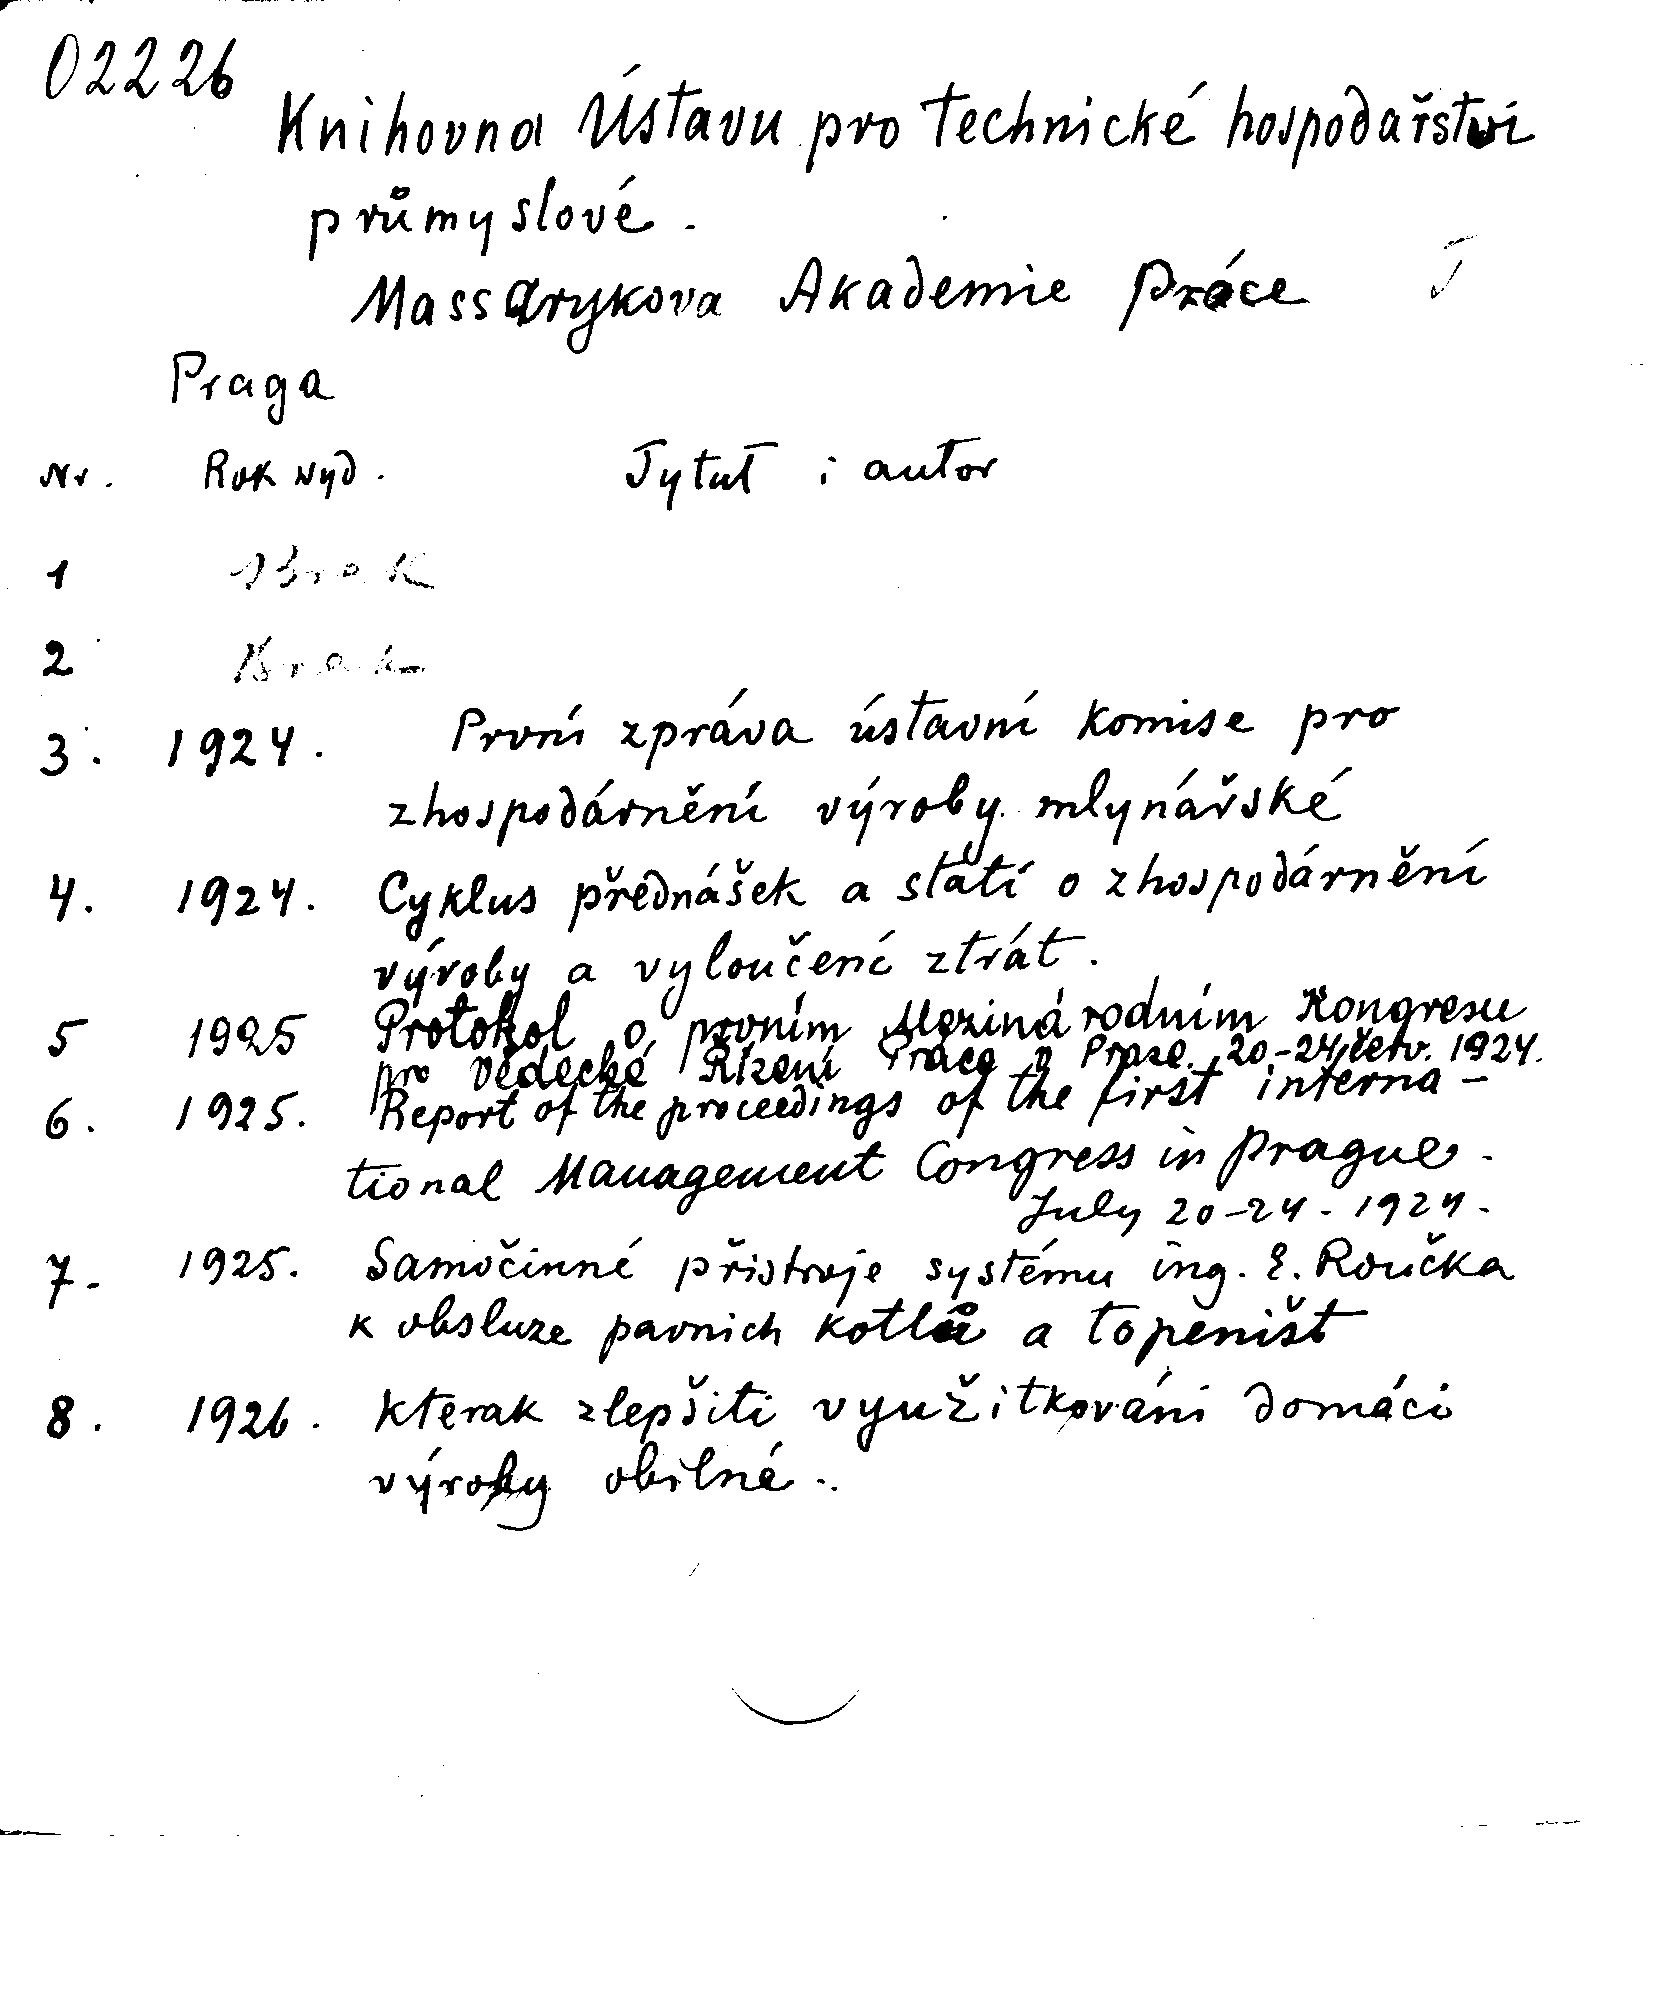 02226
Knihovna Ústavu pro technické hospodařstvi
průmyslové.
Massarykova Akademie Práce
Praga
Nr. Rok wyd. Tytuł i autor
1 Brak
2 Brak
3. 1924. První zpráva ústavní komise pro
zhospodárnění výroby mlynářské
4. 1924. Cyklus přednášek a statí o zhospodárnění
výroby a vyloučení ztrát.
5 1925 Protokol o prvním Mezinárodním Kongresu
pro Vědecké Řízení Práce v Praze. 20-24 četv. 1924.
6. 1925. Report of the proceedings of the first interna-
tional Management Congress in Prague.
July 20-24. 1924.
7. 1925. Samočinné přistroje systému ing. E. Roučka
k obsluze parnich kotlů a topeništ
8. 1926. Kterak zlepšiti využitkováni domáci
výroby obilné.